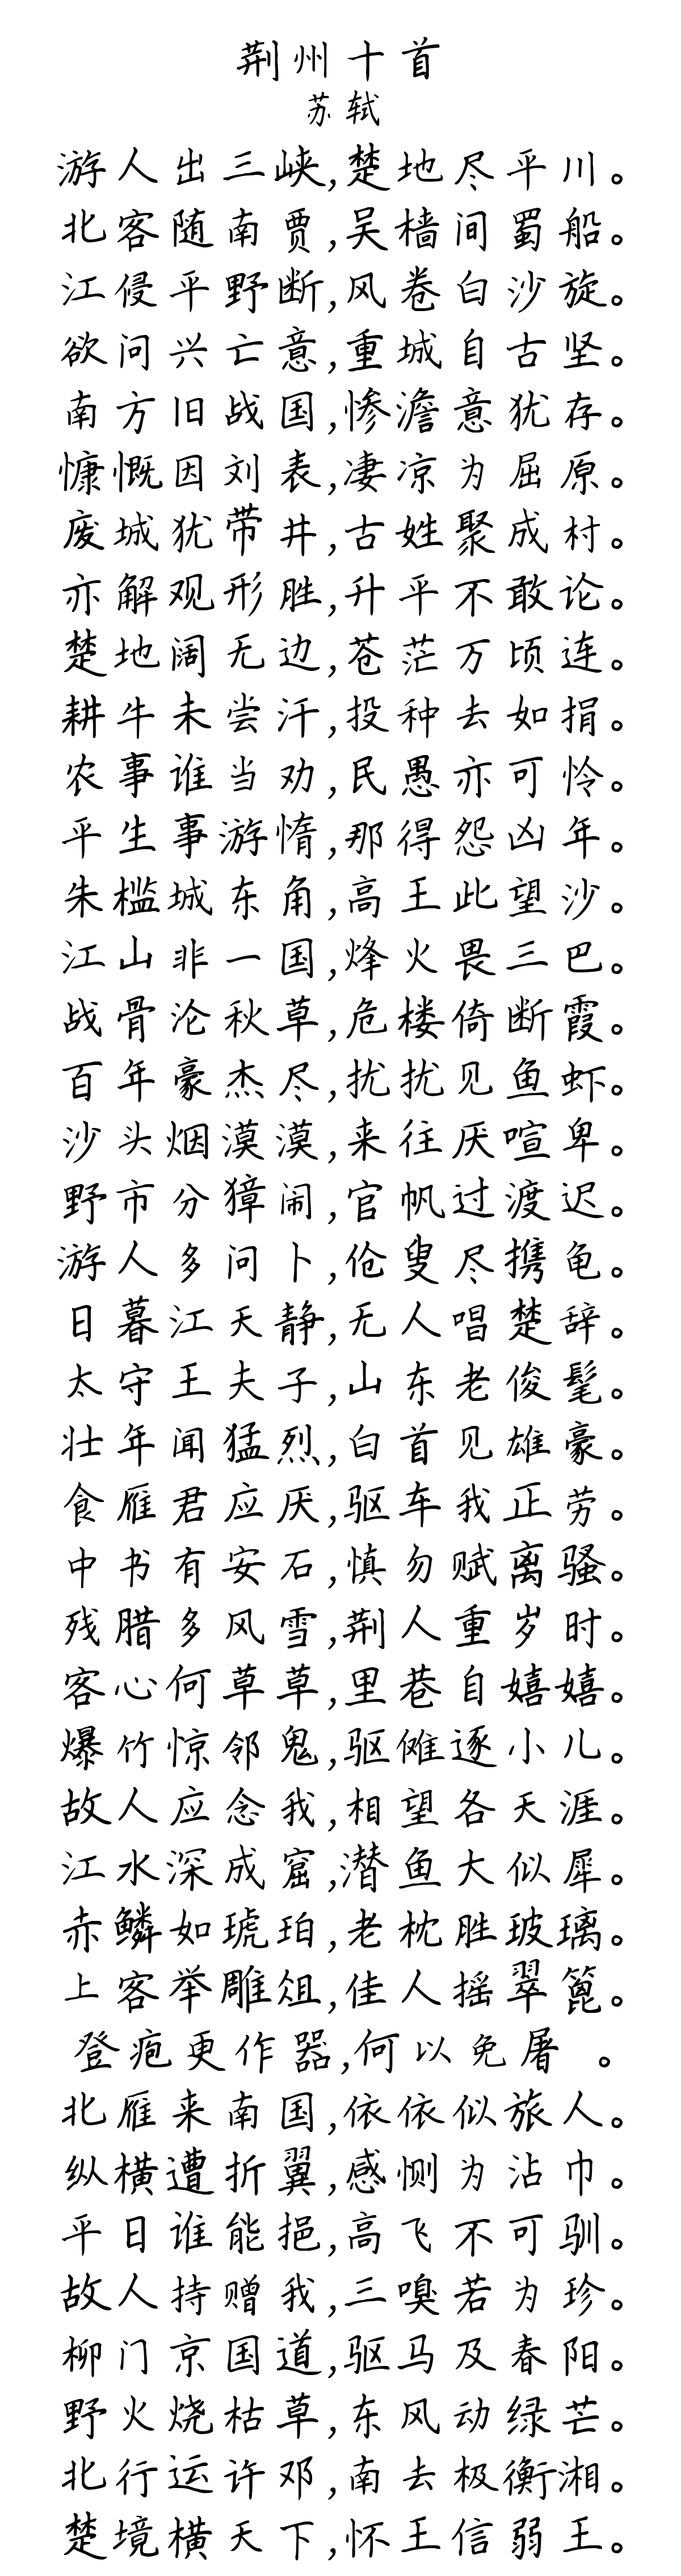 荆州十首
苏轼
游人出三峡,楚地尽平川。
北客随南贾,吴樯间蜀船。
江侵平野断,风卷白沙旋。
欲问兴亡意,重城自古坚。
南方旧战国,惨澹意犹存。
慷慨因刘表,凄凉为屈原。
废城犹带井,古姓聚成村。
亦解观形胜,升平不敢论。
楚地阔无边,苍茫万顷连。
耕牛未尝汗,投种去如捐。
农事谁当劝,民愚亦可怜。
平生事游惰,那得怨凶年。
朱槛城东角,高王此望沙。
江山非一国,烽火畏三巴。
战骨沦秋草,危楼倚断霞。
百年豪杰尽,扰扰见鱼虾。
沙头烟漠漠,来往厌喧卑。
野市分獐闹,官帆过渡迟。
游人多问卜,伧叟尽携龟。
日暮江天静,无人唱楚辞。
太守王夫子,山东老俊髦。
壮年闻猛烈,白首见雄豪。
食雁君应厌,驱车我正劳。
中书有安石,慎勿赋离骚。
残腊多风雪,荆人重岁时。
客心何草草,里巷自嬉嬉。
爆竹惊邻鬼,驱傩逐小儿。
故人应念我,相望各天涯。
江水深成窟,潜鱼大似犀。
赤鳞如琥珀,老枕胜玻璃。
上客举雕俎,佳人摇翠篦。
登疱更作器,何以免屠 。
北雁来南国,依依似旅人。
纵横遭折翼,感恻为沾巾。
平日谁能挹,高飞不可驯。
故人持赠我,三嗅若为珍。
柳门京国道,驱马及春阳。
野火烧枯草,东风动绿芒。
北行运许邓,南去极衡湘。
楚境横天下,怀王信弱王。